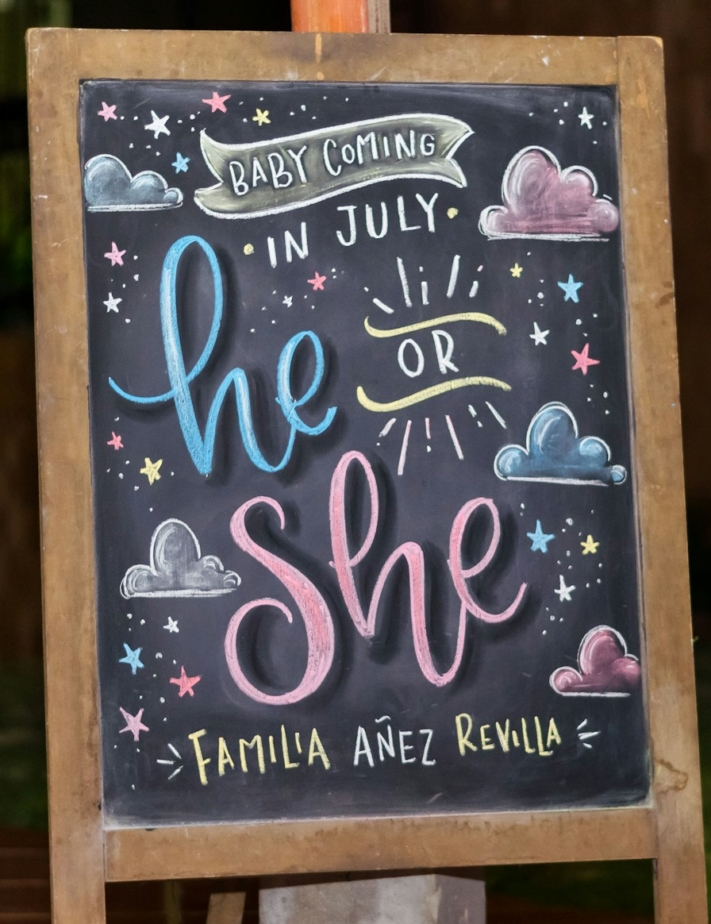 BABY COMING
IN JULY
he
OR
She
FAMILIA AÑEZ REVILLA